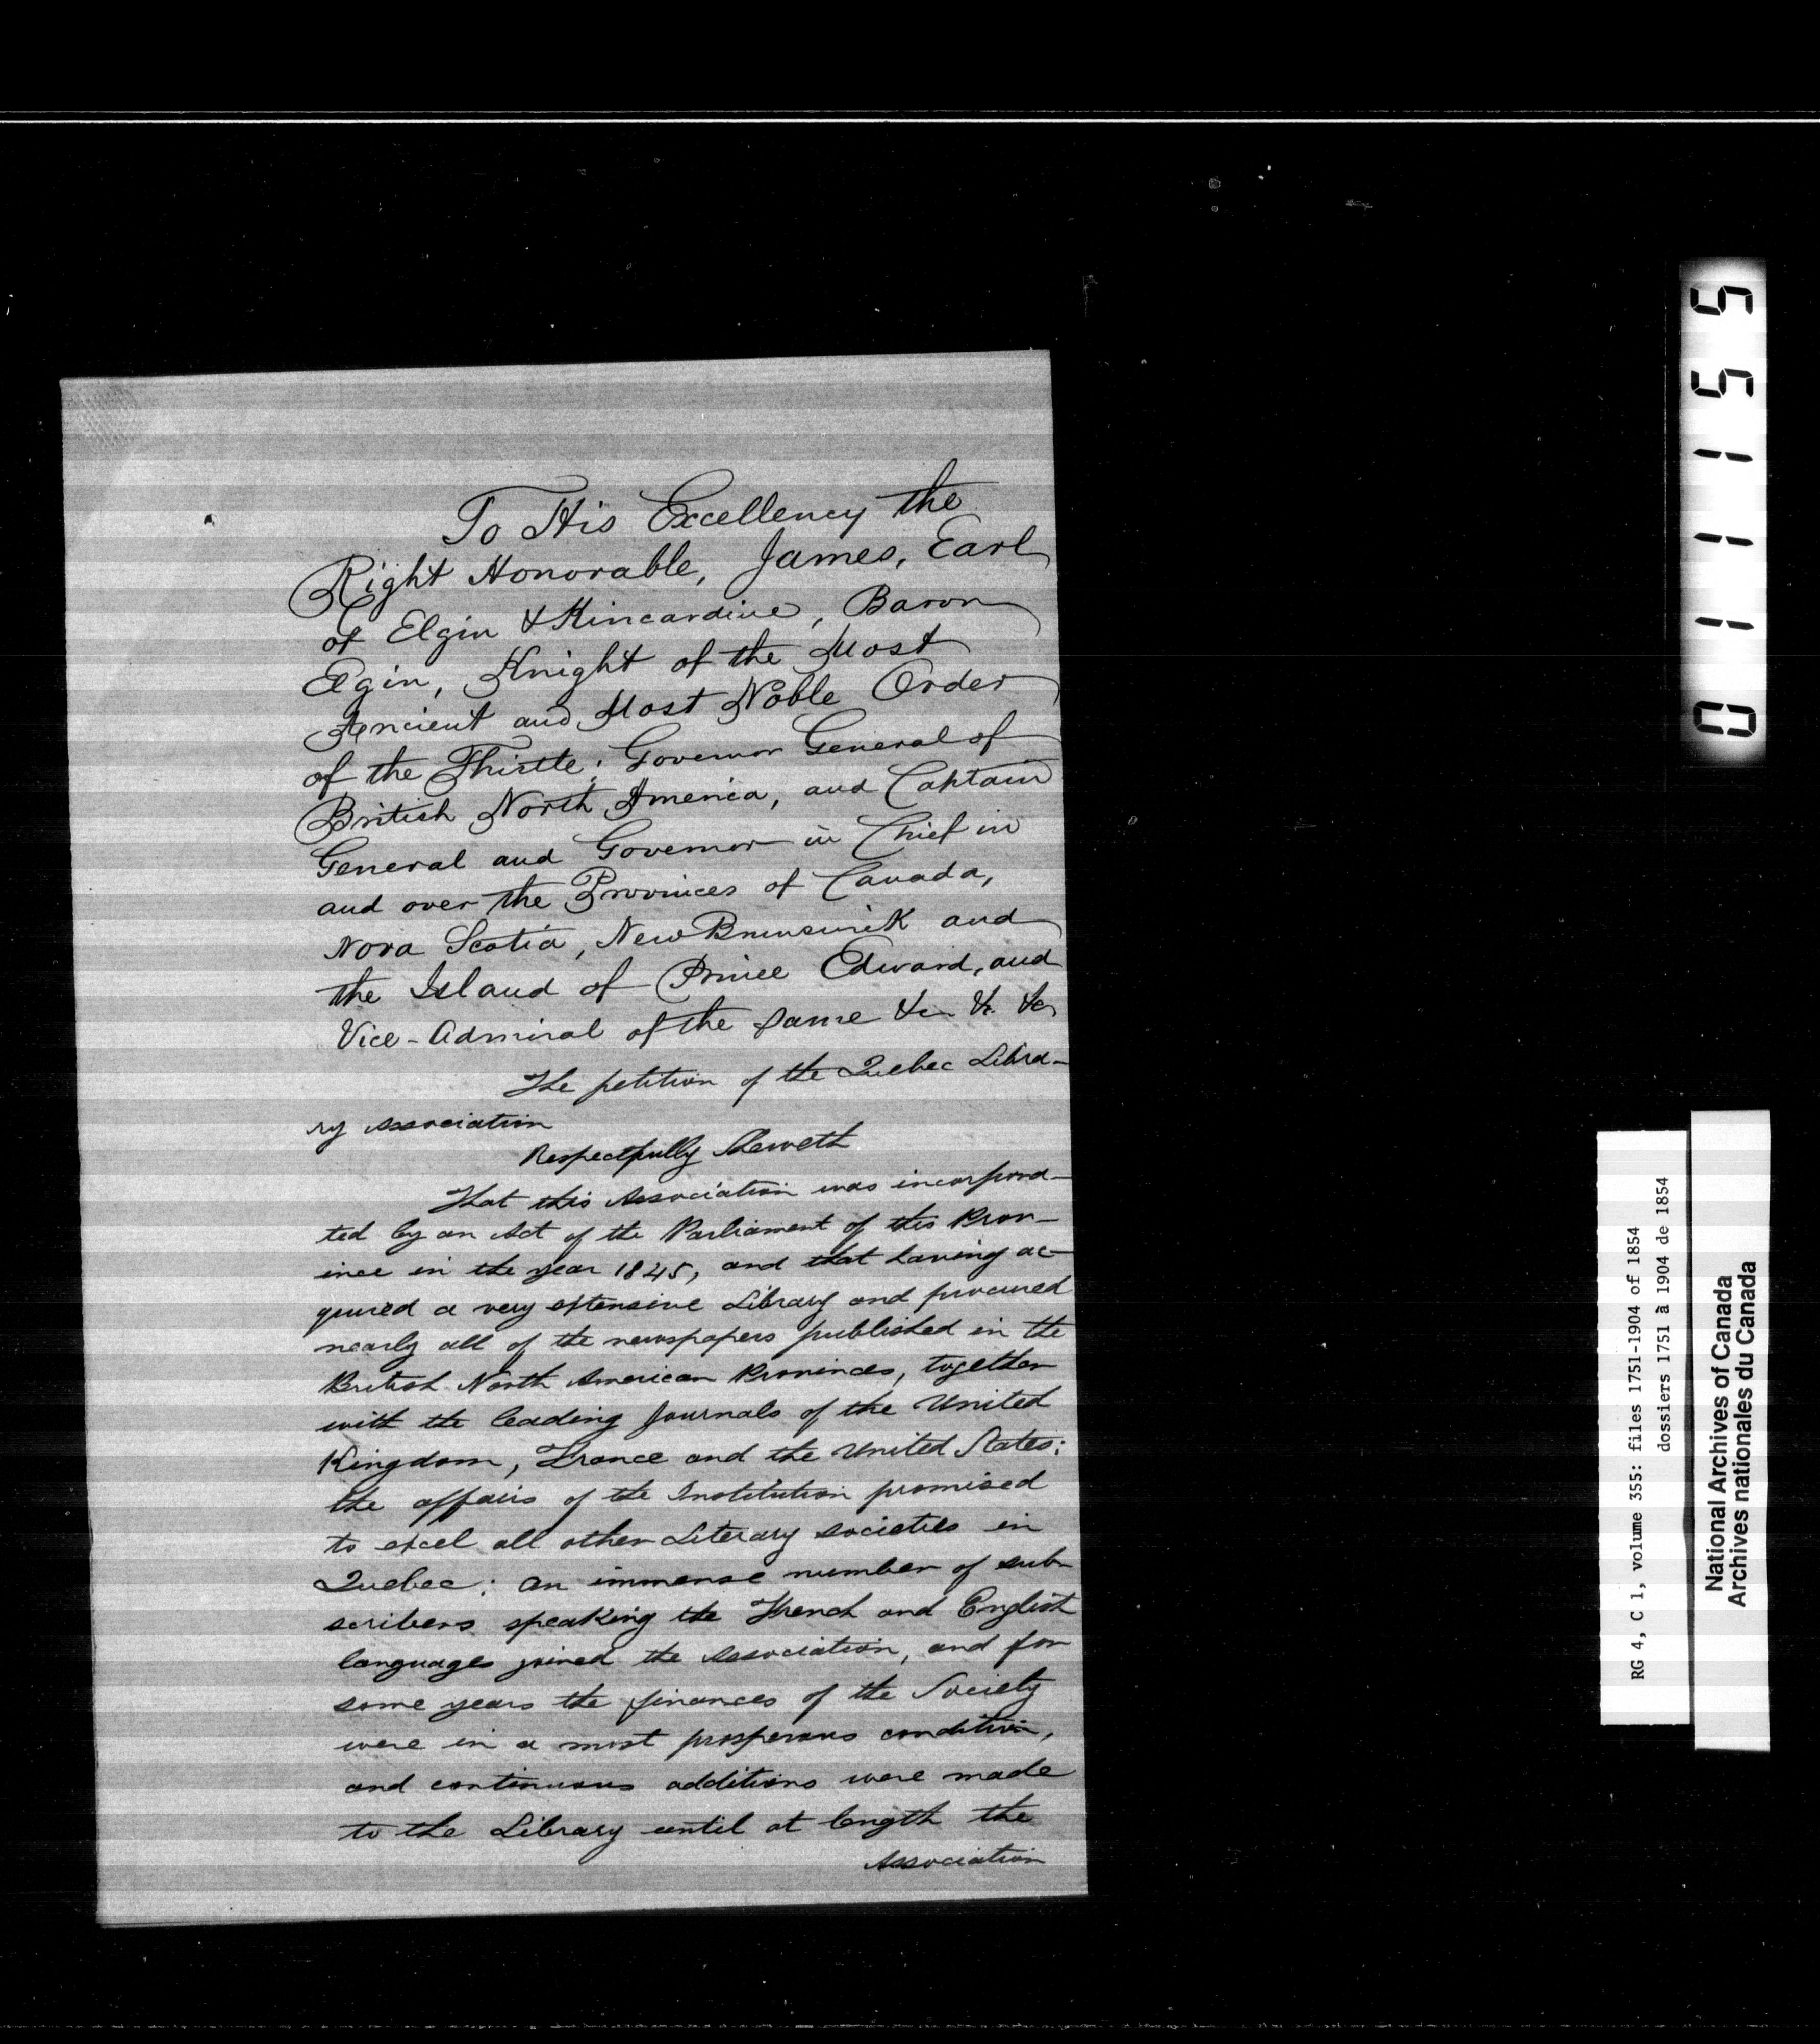 To His Excellency the
Right Honorable, James, Earl
of Elgin & Kincardine, Baron
Elgin, Knight of the Most
Ancient and Most Noble Order
of the Thistle; Governor General of
British North America, and Captain
General and Governor in Chief in
and over the Provinces of Canada,
Nova Scotia, New Brunswick and
the Island of Prince Edward, and
Vice-Admiral of the same &c &c &c
The petition of the Quebec Libra-
ry Association
Respectfully Sheweth
That this Association was incorpora-
ted by an Act of the Parliament of this Prov-
ince in the year 1845, and that having ac-
quired a very extensive Library and procured
nearly all of the newspapers published in the
British North American Provinces, together
with the leading Journals of the United
Kingdom, France and the United States;
the affairs of the Institution promised
to excel all other Literary societies in
Quebec; an immense number of sub-
scribers speaking the French and English
languages joined the Association, and for
some years the finances of the Society
were in a most prosperous condition,
and continuous additions were made
to the Library until at length the
Association
011155
RG 4, C 1, volume 355: files 1751-1904 of 1854
dossiers 1751 à 1904 de 1854
National Archives of Canada
Archives nationales du Canada